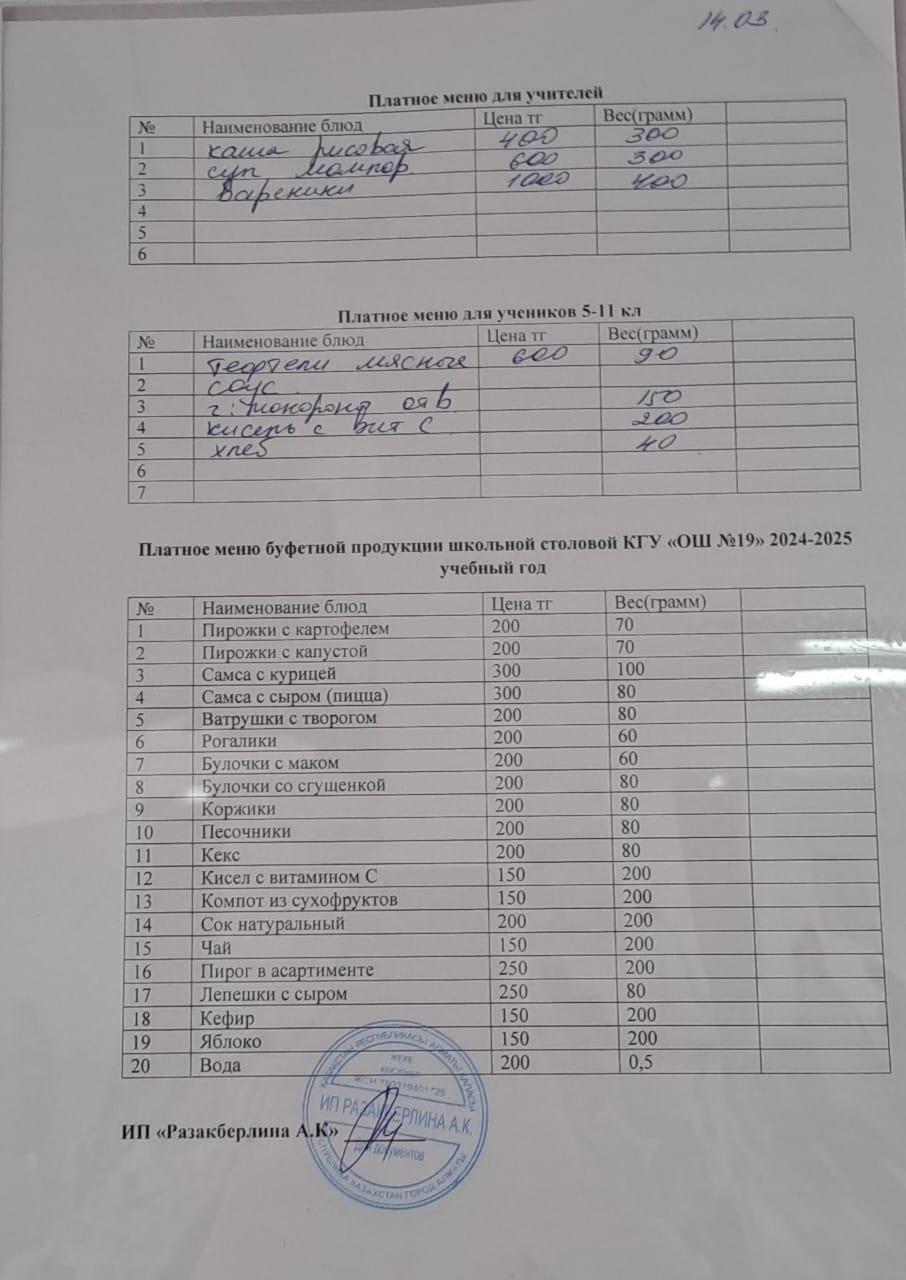 14.03.
Платное меню для учителей
№ Наименование блюд Цена тг Вес(грамм)
1 каша рисовая 400 300
2 суп мампар 600 300
3 Вареники 1000 400
4
5
6
Платное меню для учеников 5-11 кл
№ Наименование блюд Цена тг Вес(грамм)
1 тефтели мясные 600 90
2 соус
3 г: макароны отв 150
4 кисель с вит С 200
5 хлеб 40
6
7
Платное меню буфетной продукции школьной столовой КГУ «ОШ №19» 2024-2025
учебный год
№ Наименование блюд Цена тг Вес(грамм)
1 Пирожки с картофелем 200 70
2 Пирожки с капустой 200 70
3 Самса с курицей 300 100
4 Самса с сыром (пицца) 300 80
5 Ватрушки с творогом 200 80
6 Рогалики 200 60
7 Булочки с маком 200 60
8 Булочки со сгущенкой 200 80
9 Коржики 200 80
10 Песочники 200 80
11 Кекс 200 80
12 Кисел с витамином С 150 200
13 Компот из сухофруктов 150 200
14 Сок натуральный 200 200
15 Чай 150 200
16 Пирог в асартименте 250 200
17 Лепешки с сыром 250 80
18 Кефир 150 200
19 Яблоко 150 200
20 Вода 200 0,5
ҚАЗАҚСТАН РЕСПУБЛИКАСЫ АЛМАТЫ ҚАЛАСЫ
ЖЕКЕ
КӘСІПКЕР
ИП РАЗАКБЕРЛИНА А.К.
ИП «Разакберлина А.К»
Для документов
РЕСПУБЛИКА КАЗАХСТАН ГОРОД АЛМАТЫ